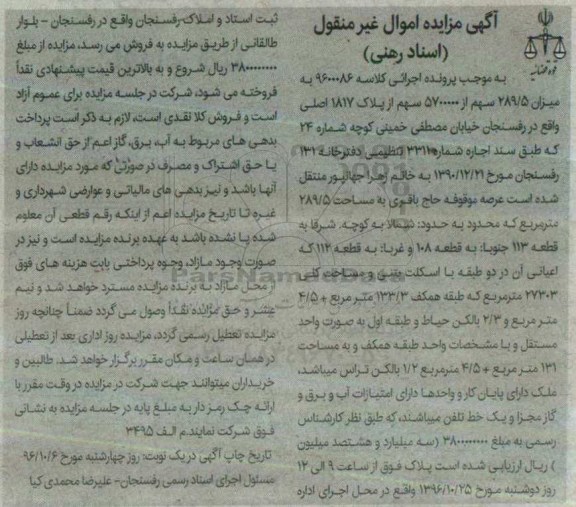 آگهی مزایده اموال غیر منقول
(اسناد رهنی)
قوه قضائیه
به موجب پرونده اجرائی کلاسه ۹۶۰۰۰۸۶ به
میزان ۲۸۹/۵ سهم از ۵۷۰۰۰۰۰ سهم از پلاک ۱۸۱۷ اصلی
واقع در رفسنجان خیابان مصطفی خمینی کوچه شماره ۲۴
که طبق سند اجاره شماره ۳۳۱۱۰ تنظیمی دفترخانه ۱۳۱
رفسنجان مورخ ۱۳۹۰/۱۲/۲۱ به خانم زهرا جهانپور منتقل
شده است عرصه موقوفه حاج باقری به مساحت ۲۸۹/۵
مترمربع که محدود به حدود: شمالا به کوچه، شرقا به
قطعه ۱۱۳ جنوبا: به قطعه ۱۰۸ و غربا: به قطعه ۱۱۲ که
اعیانی آن در دو طبقه با اسکلت بتنی و مساحت کلی
۲۷۳۰۳ مترمربع که طبقه همکف ۱۳۳/۳ متر مربع + ۴/۵
متر مربع و ۲/۳ بالکن حیاط و طبقه اول به صورت واحد
مستقل و با مشخصات واحد طبقه همکف و به مساحت
۱۳۱ متر مربع + ۴/۵ مترمربع ۱/۲ بالکن تراس میباشد،
ملک دارای پایان کار و واحدها دارای امتیازات آب و برق و
گاز مجزا و یک خط تلفن میباشند، که طبق نظر کارشناس
رسمی به مبلغ ۳۸۰۰۰۰۰۰۰۰ (سه میلیارد و هشتصد میلیون
) ریال ارزیابی شده است پلاک فوق از ساعت ۹ الی ۱۲
روز دوشنبه مورخ ۱۳۹۶/۱۰/۲۵ واقع در محل اجرای اداره
ثبت اسناد و املاک رفسنجان واقع در رفسنجان - بلوار
طالقانی از طریق مزایده به فروش می رسد، مزایده از مبلغ
۳۸۰۰۰۰۰۰۰۰ ریال شروع و به بالاترین قیمت پیشنهادی نقداً
فروخته می شود، شرکت در جلسه مزایده برای عموم آزاد
است و فروش کلا نقدی است، لازم به ذکر است پرداخت
بدهی های مربوط به آب، برق، گاز اعم از حق انشعاب و
یا حق اشتراک و مصرف در صورتی که مورد مزایده دارای
آنها باشد و نیز بدهی های مالیاتی و عوارض شهرداری و
غیره تا تاریخ مزایده اعم از اینکه رقم قطعی آن معلوم
شده یا نشده باشد به عهده برنده مزایده است و نیز در
صورت وجود مازاد، وجوه پرداختی بابت هزینه های فوق
از محل مازاد به برنده مزایده مسترد خواهد شد و نیم
عشر و حق مزایده نقداً وصول می گردد ضمناً چنانچه روز
مزایده تعطیل رسمی گردد، مزایده روز اداری بعد از تعطیلی
در همان ساعت و مکان مقرر برگزار خواهد شد. طالبین و
خریداران میتوانند جهت شرکت در مزایده در وقت مقرر با
ارائه چک رمز دار به مبلغ پایه در جلسه مزایده به نشانی
فوق شرکت نمایند. م الف ۳۴۹۵
تاریخ چاپ آگهی در یک نوبت: روز چهارشنبه مورخ ۹۶/۱۰/۶
مسئول اجرای اسناد رسمی رفسنجان- علیرضا محمدی کیا
ParsNamadData